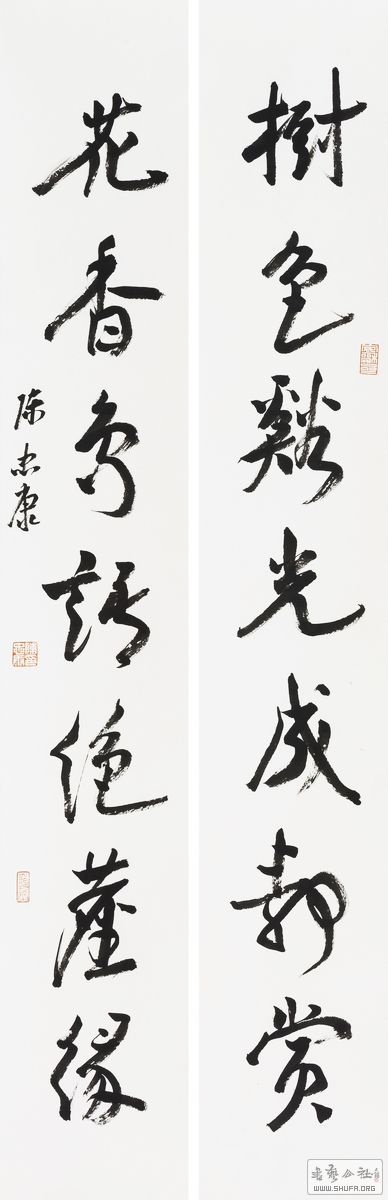 樹色谿光成靜賞
花香鳥語絕塵緣
陳忠康
書藝公社
WWW.SHUFA.ORG